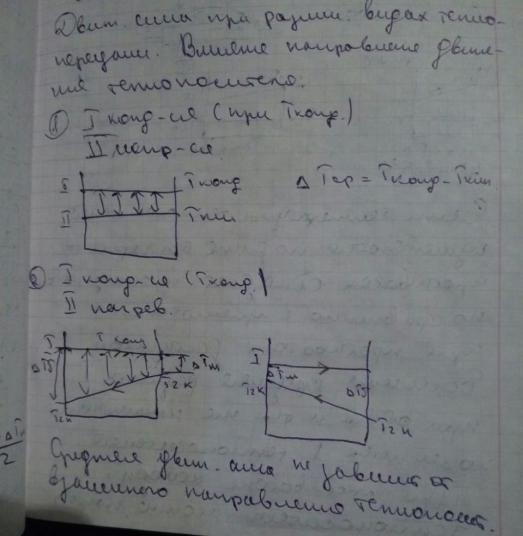 Движ. сила при различ. видах тепло-
передачи. Влияние направления движе-
ния теплоносителя.
① I конд-ия (при Tконд.)
II испар-ся
I Tконд Δ Tср = Tконд - Tкип
II Tкип
② I конд-ия (Tконд.)
II нагрев.
I T конд I
ΔTб ΔTм ΔTм ΔTб
T2к T2к T2н
ΔTм
2
Средняя движ. сила не зависит от
взаимного направления теплоносит.